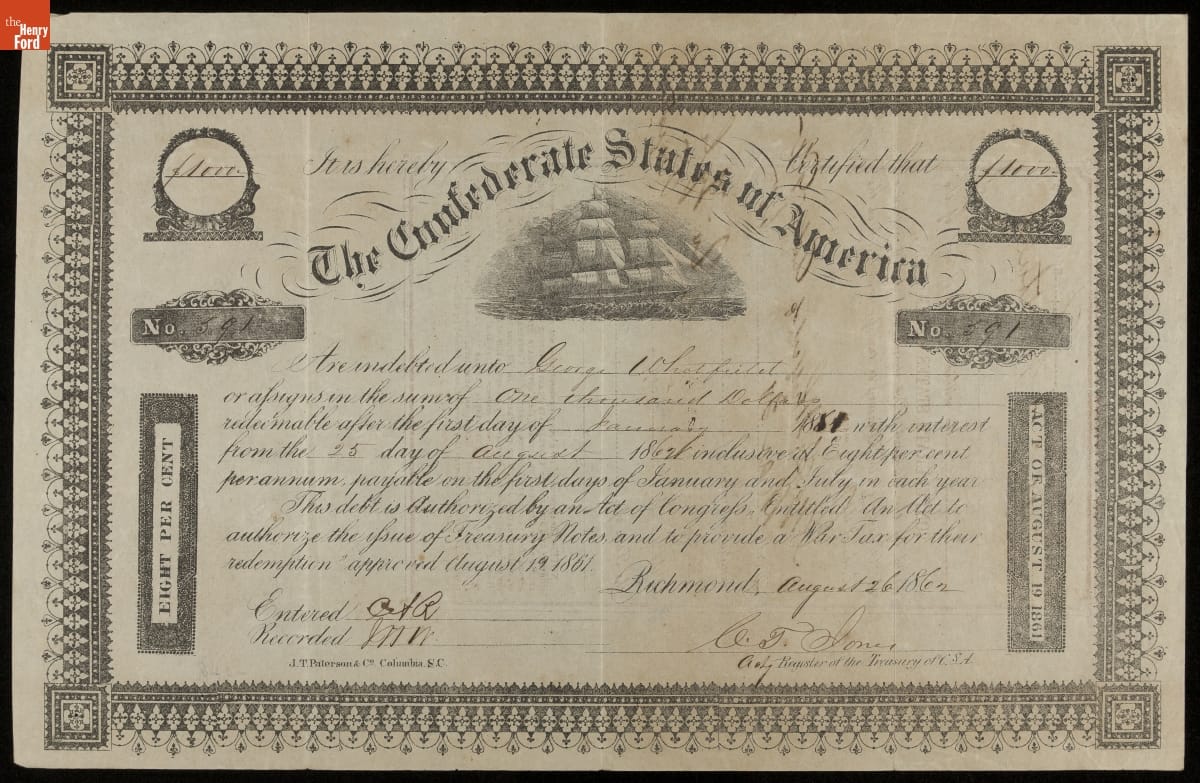 the
Henry
Ford
$1000.
It is hereby
Certified that
$1000.
The Confederate States of America
No. 591
No. 591
Are indebted unto George Whatfield
or assigns in the sum of One thousand Dollars
redeemable after the first day of January 1881 with interest
from the 25 day of august 1862 inclusive at Eight per cent
per annum, payable on the first days of January and July in each year
This debt is Authorized by an Act of Congress, Entitled "An Act to
authorize the issue of Treasury Notes, and to provide a War Tax for their
redemption" approved August 19. 1861.
EIGHT PER CENT
ACT OF AUGUST 19 1861
Richmond, august 26 1862
Entered
Recorded
C. T. Jones
Actg Register of the Treasury of C.S.A.
J.T. Paterson & Co. Columbia, S.C.